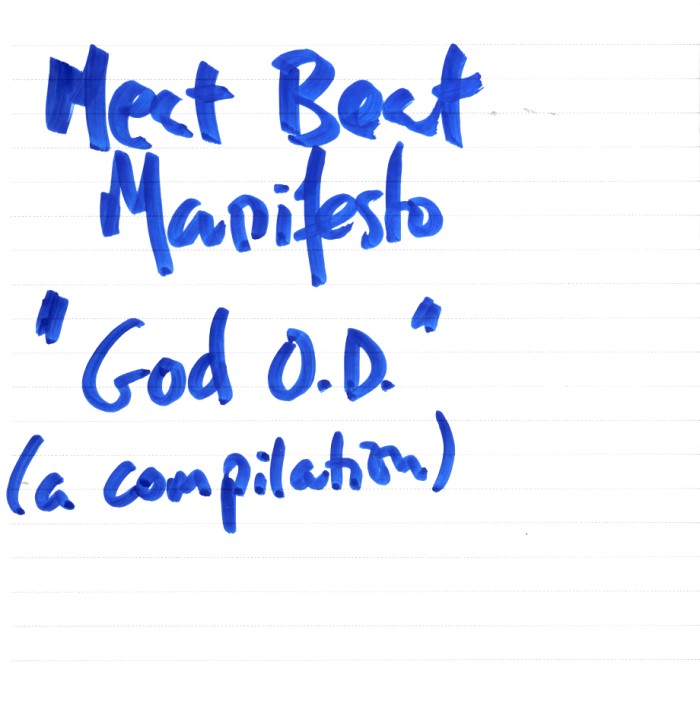 Meat Beat
Manifesto
"God O.D."
(a compilation)